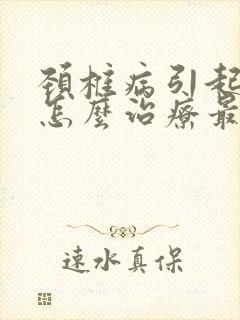 頸椎病引起
怎麼治療最
速水真保